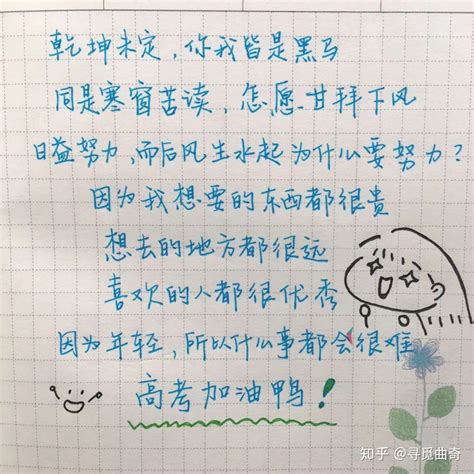 乾坤未定，你我皆是黑马
同是寒窗苦读，怎愿甘拜下风
日益努力，而后风生水起为什么要努力？
因为我想要的东西都很贵
想去的地方都很远
喜欢的人都很优秀
因为年轻，所以什么事都会很难
高考加油鸭！
知乎 @寻觅曲奇